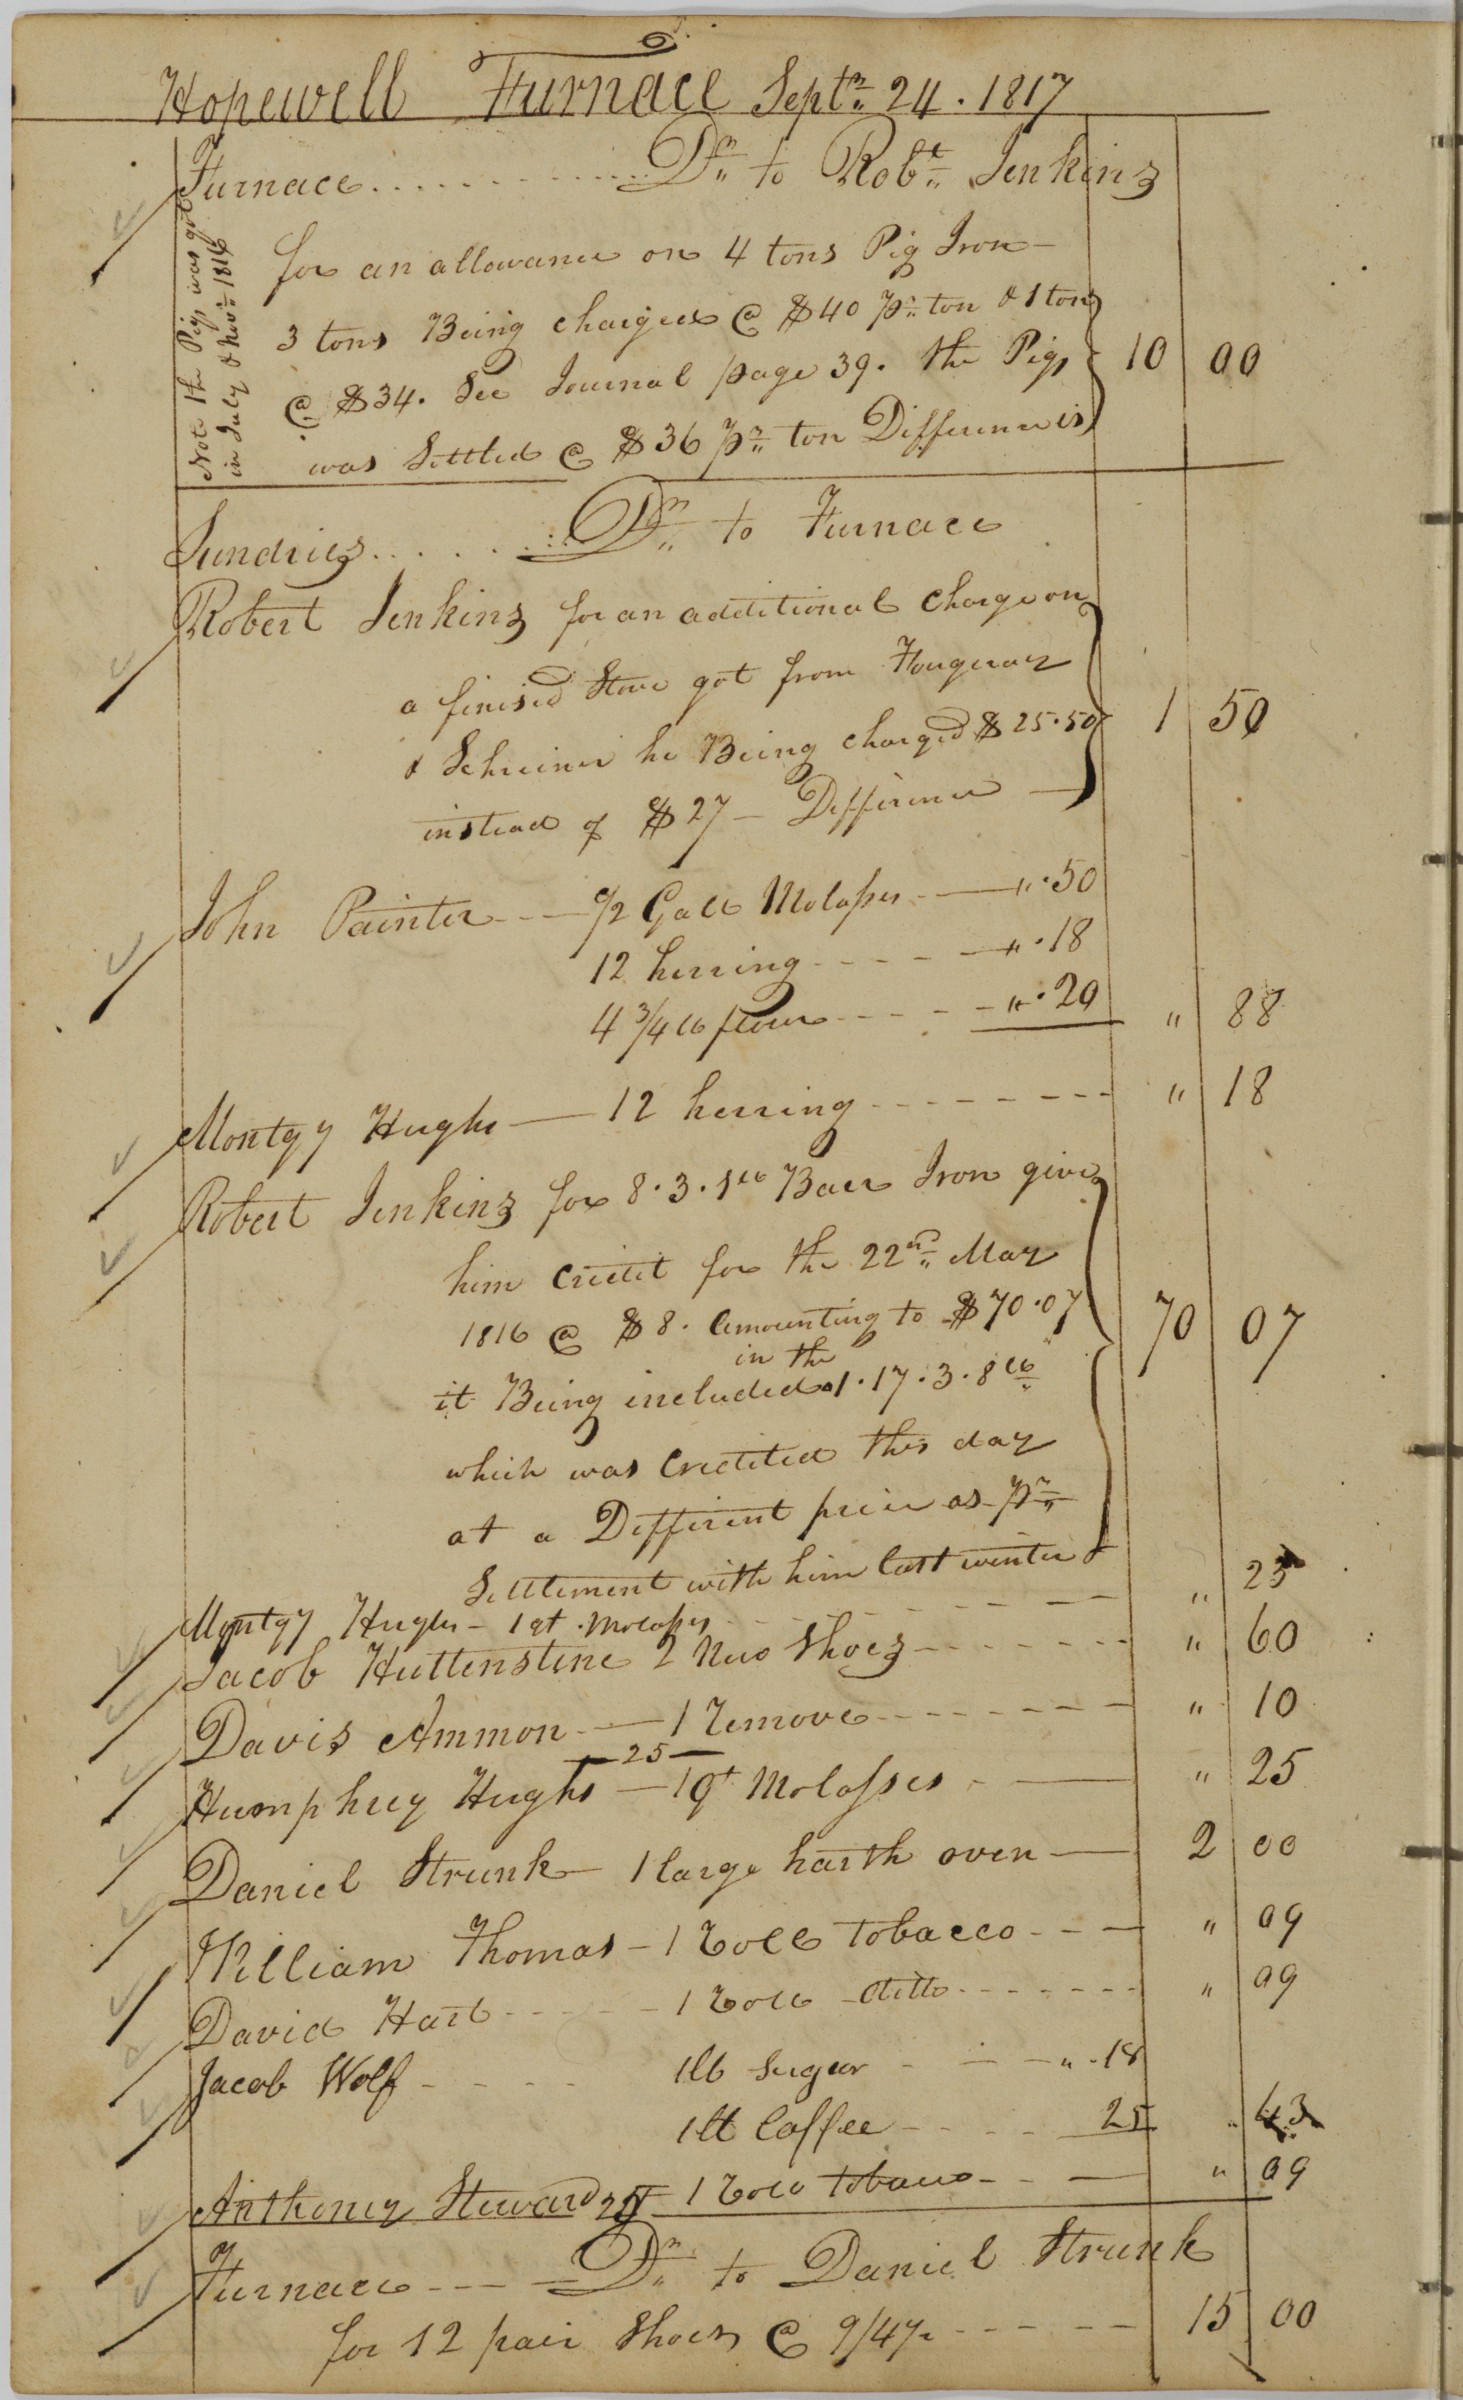 6
Hopewell Furnace Septr 24. 1817
Furnace .......... Dr to Robt Jenkins
Note the Pigs was got
in July & Novr 1816
for an allowance on 4 tons Pig Iron —
3 tons Being charged @ $40 pr ton & 1 ton
@ $34. See Journal page 39. the Pigs
was Settled @ $36 pr ton Difference is 10 00
Sundries ....... Dr to Furnace
Robert Jenkins for an additional charge on
a finised Stove got from
& Schreiner he Being charged $25.50
instead of $27 — Difference — 1 50
John Painter --- 1/2 Gall Molasses — " .50
12 herring ---- " .18
4 3/4 lb flour ---- " .20 " 88
Montgy Hughs — 12 herring -------- " 18
Robert Jenkins for 8.3.1 lb Barr Iron give
him credit for the 22nd May
1816 @ $8. amounting to $70.07 70 07
in the
it Being included 1.17.3.8 lb
which was Credited this day
at a Different price as pr
Settlement with him last winter &
Montgy Hughs - 1 qt. molasses ------- " 25
Jacob Huttenstine 2 New Shoes ------- " 60
Davis Ammon --- 1 remove ------- " 10
— 25 —
Humphrey Hughs — 1 qt Molasses - — " 25
Daniel Strunk — 1 large harth oven — 2 00
William Thomas - 1 roll tobacco --- " 09
David Hart ---- 1 roll ditto ------- " 09
Jacob Wolf ---- 1 lb Sugar - — " .18
1 lb Coffee ---- 25 " 43
Anthoney Steward 25 1 roll tobacco -- — " 09
Furnace --- — Dr to Daniel Strunk
for 12 pair Shoes @ 9/4½ ------ 15 00